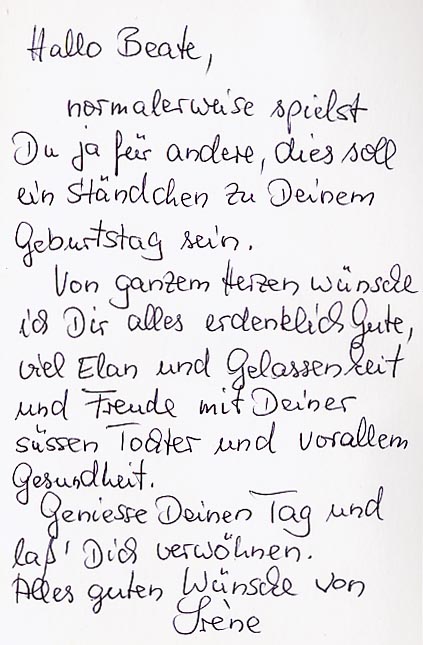 Hallo Beate,
normalerweise spielst
Du ja für andere, dies soll
ein Ständchen zu Deinem
Geburtstag sein.
Von ganzem Herzen wünsche
ich Dir alles erdenklich Gute,
viel Elan und Gelassenheit
und Freude mit Deiner
süssen Tochter und vorallem
Gesundheit.
Geniesse Deinen Tag und
laß' Dich verwöhnen.
Alles guten Wünsche von
Irène